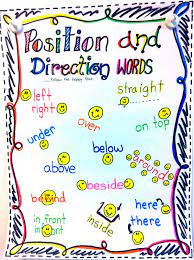 Position and
Direction WORDS
Follow the happy face
left
right
straight
over
on top
under
below
above
around
beside
behind
here
there
in front
in front
inside